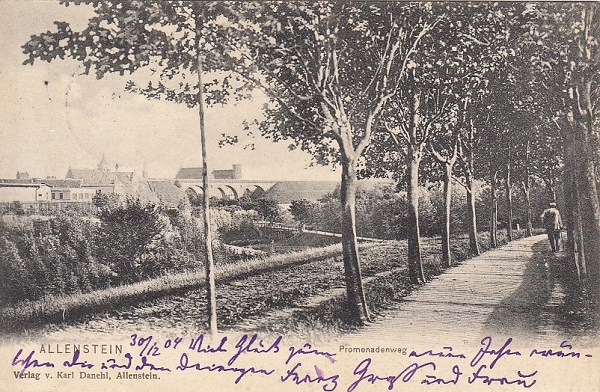 ALLENSTEIN 30/12 04 Viel Glück zum Promenadenweg neuen Jahre wün-
schen dir und den deinigen Franz Groß und Frau
Verlag v. Karl Danehl, Allenstein.